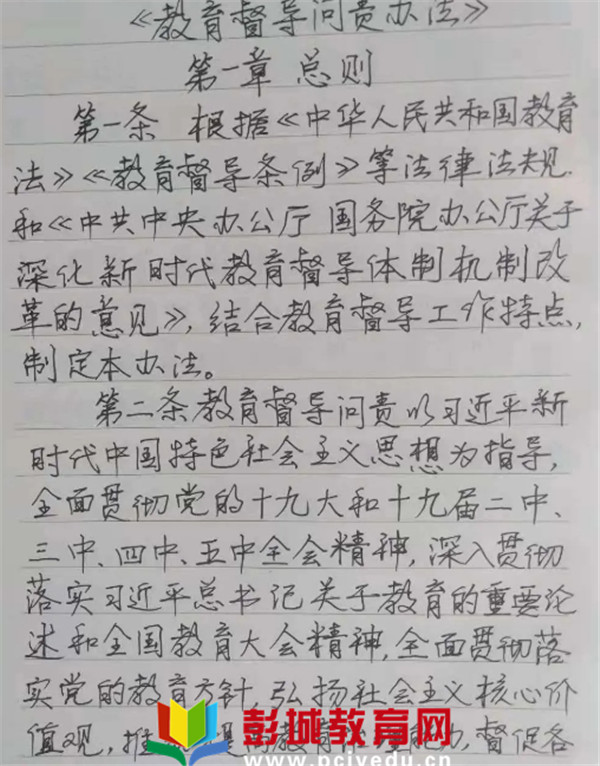 《教育督导问责办法》
第一章 总则
第一条 根据《中华人民共和国教育
法》《教育督导条例》等法律法规
和《中共中央办公厅 国务院办公厅关于
深化新时代教育督导体制机制改
革的意见》,结合教育督导工作特点,
制定本办法。
第二条教育督导问责以习近平新
时代中国特色社会主义思想为指导,
全面贯彻党的十九大和十九届二中、
三中、四中、五中全会精神,深入贯彻
落实习近平总书记关于教育的重要论
述和全国教育大会精神,全面贯彻落
实党的教育方针,弘扬社会主义核心价
值观,推 教育 能力,督促各
彭城教育网
www.pcjyedu.cn